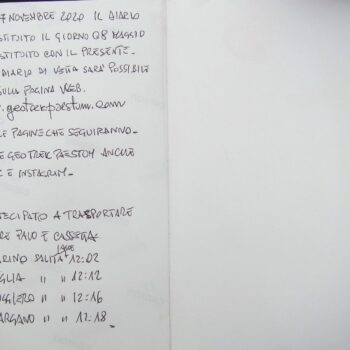 7 NOVEMBRE 2020 IL DIARIO
STITUITO IL GIORNO 08 MAGGIO
STITUITO CON IL PRESENTE.
DIARIO DI VETTA SARA' POSSIBILE
SULLA PAGINA WEB.
.geotrekpaestum.com
LE PAGINE CHE SEGUIRANNO.
E GEOTREKPAESTUM ANCHE
E INSTAGRAM.
TECIPATO A TRASPORTARE
RE PALO E CASSETTA
RINO SALITA 12:02
GLIA " " 12:12
GGIERO " " 12:16
ARGANO " " 12:18.